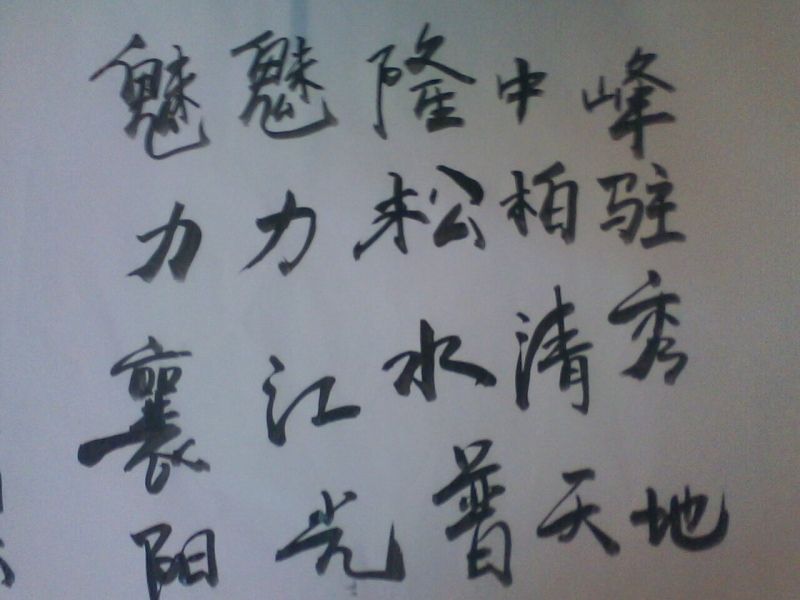 魅魅隆中峰
力力松柏驻
襄江水清秀
阳光普天地